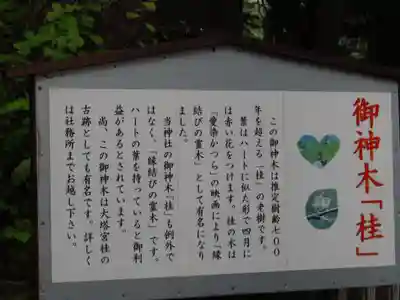 御神木「桂」
この御神木は推定樹齢七〇〇
年を超える「桂」の老樹です。
葉はハートに似た形で四月に
は赤い花をつけます。桂の木は
「愛染かつら」の映画により「縁
結びの霊木」として有名になり
ました。
当神社の御神木「桂」も例外で
はなく、「縁結びの霊木」です。
ハートの葉を持っていると御利
益があるとされています。
尚、この御神木は大塔宮社の
古跡としても有名です。詳しく
は社務所までお越し下さい。